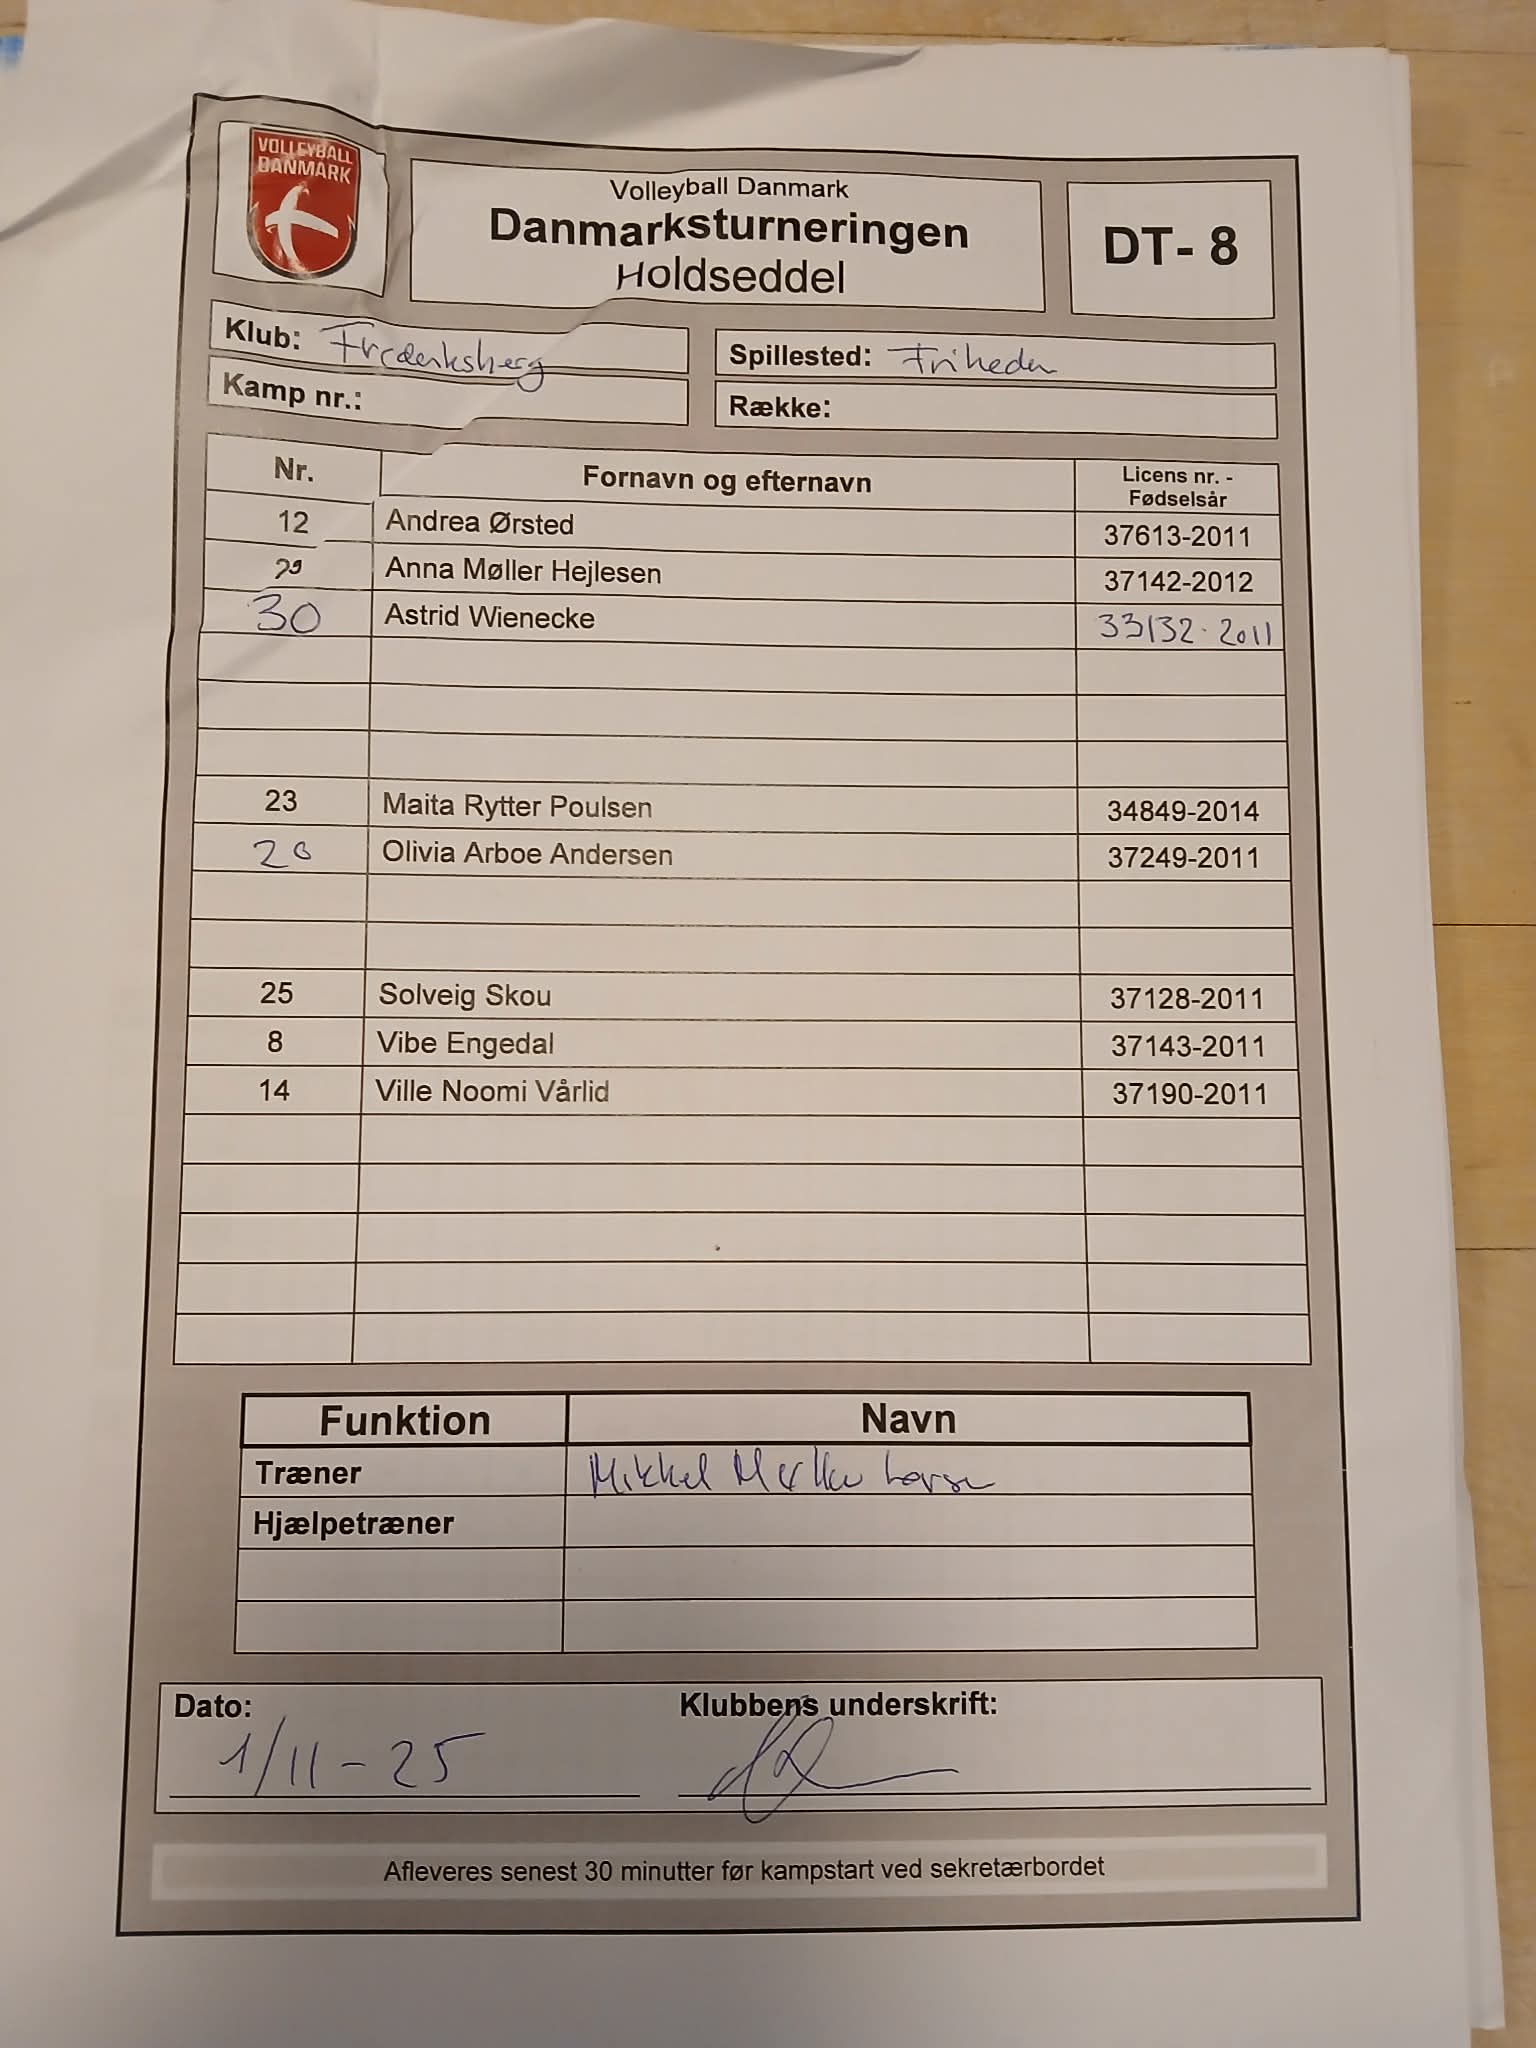 VOLLEYBALL
DANMARK
Volleyball Danmark
Danmarksturneringen
Holdseddel
DT- 8
Klub: Frederiksberg
Spillested: Friheden
Kamp nr.:
Række:
Nr. Fornavn og efternavn Licens nr. -
Fødselsår
12 Andrea Ørsted 37613-2011
Anna Møller Hejlesen 37142-2012
30 Astrid Wienecke 33132-2011
23 Maita Rytter Poulsen 34849-2014
20 Olivia Arboe Andersen 37249-2011
25 Solveig Skou 37128-2011
8 Vibe Engedal 37143-2011
14 Ville Noomi Vårlid 37190-2011
Funktion Navn
Træner Mikkel Møller Larsen
Hjælpetræner
Dato: Klubbens underskrift:
1/11-25
Afleveres senest 30 minutter før kampstart ved sekretærbordet